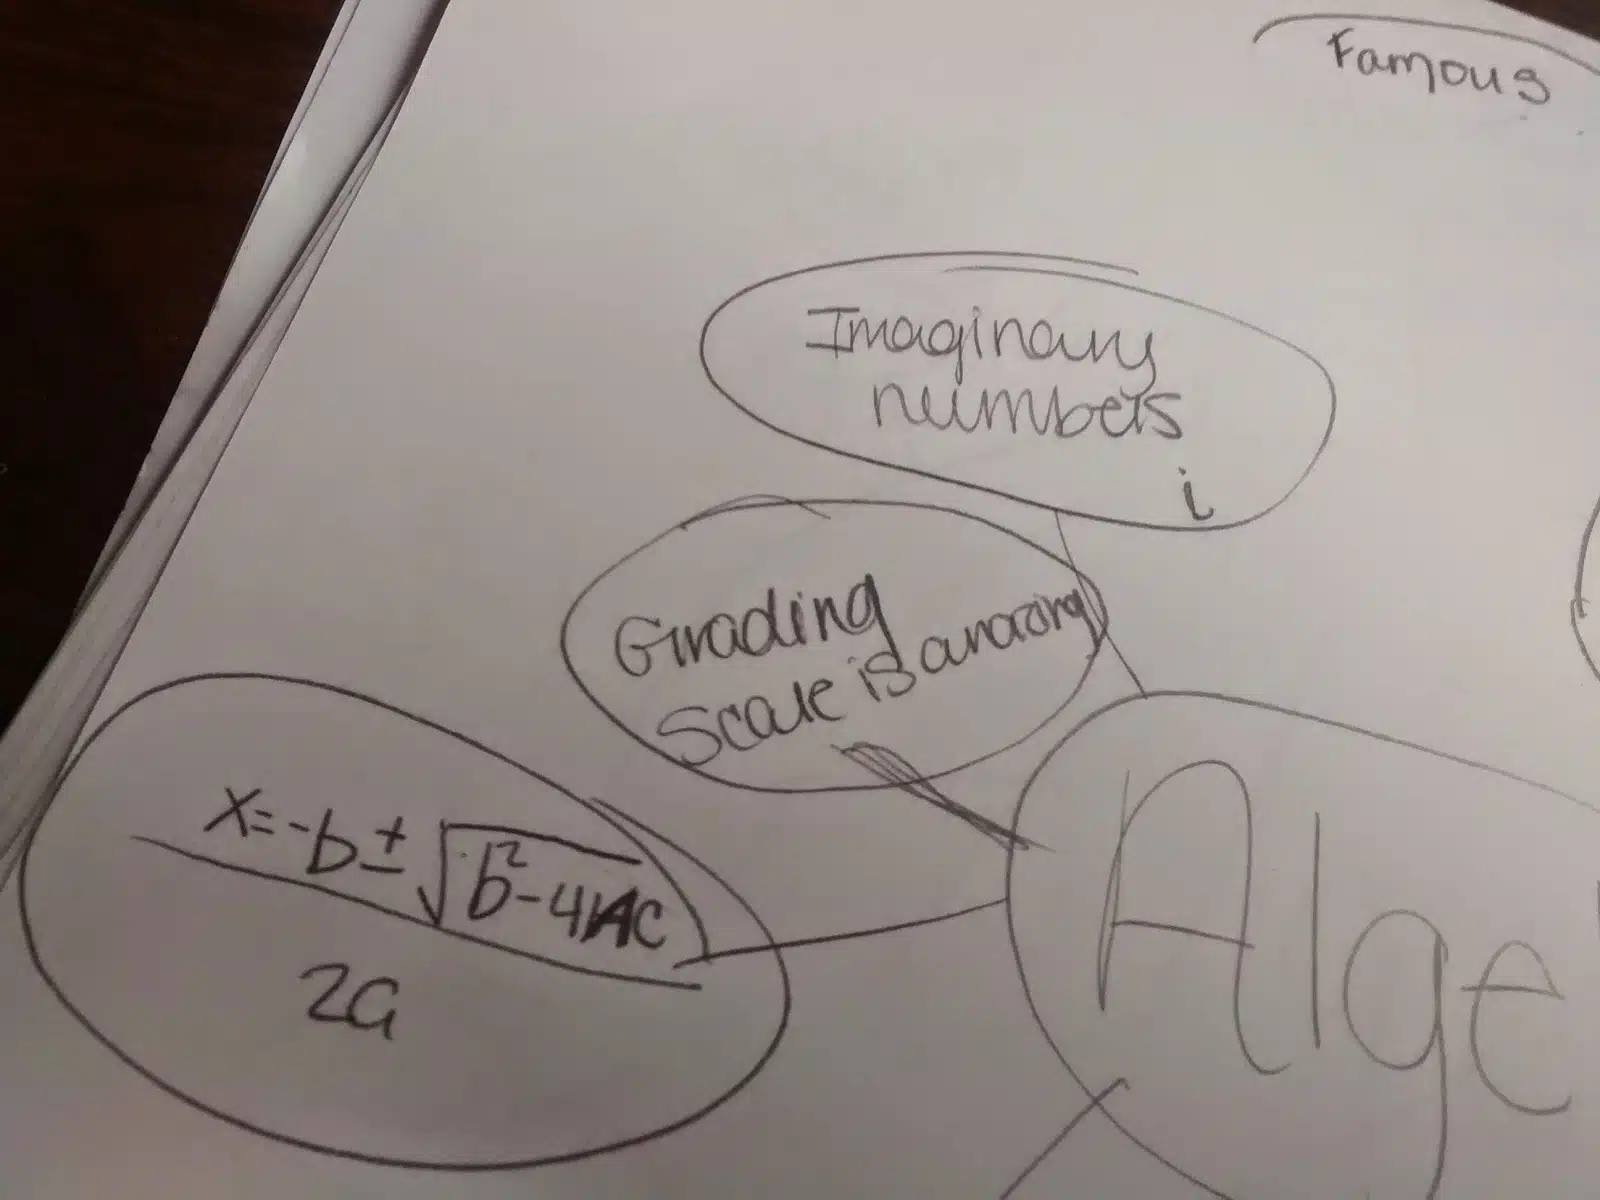 Famous
Imaginary
numbers
i
Grading
scale is amazing
x=-b±√b²-4AC
2a
Alge